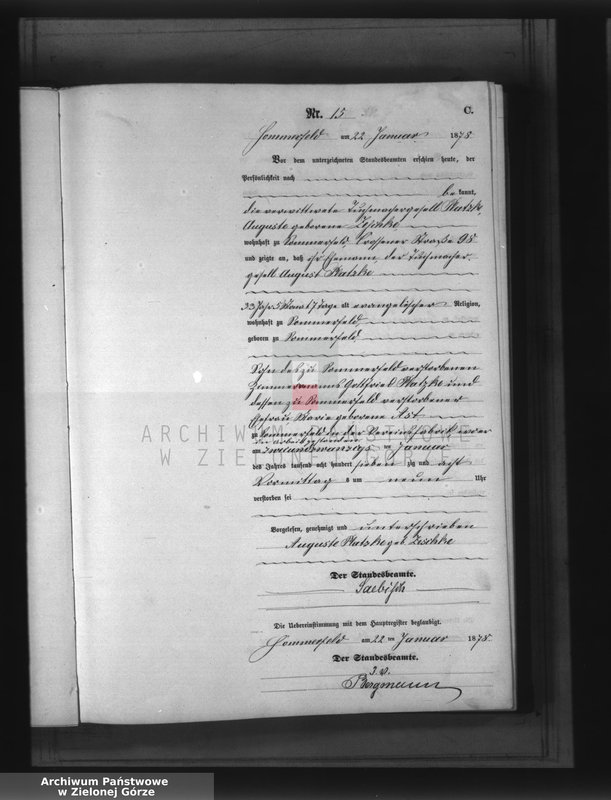 Nr. 15
C.
Sommerfeld am 22 Januar 1878
Vor dem unterzeichneten Standesbeamten erschien heute, der
Persönlichkeit nach
be kannt,
die verwittwete Tuchmachergesell Platzke,
Auguste geborene Zeschke
wohnhaft zu Sommerfeld Crossener Straße 95
und zeigte an, daß ihr Ehemann, der Tuchmacher
gesell August Platzke
33 Jahr 5 Monat 7 Tage alt evangelischer Religion,
wohnhaft zu Sommerfeld,
geboren zu Sommerfeld,
Sohn des zu Sommerfeld verstorbenen
Zimmermanns Gottfried Platzke und
dessen zu Sommerfeld verstorbener
Ehefrau Marie geborene Ast
zu Sommerfeld in der Vereinsfabrik
am zweiundzwanzigsten Januar
des Jahres tausend acht hundert sieben zig und acht
Vormittag s um neun Uhr
verstorben sei
Vorgelesen, genehmigt und unterschrieben
Auguste Platzke geb. Zeschke
Der Standesbeamte.
Saebisch
Die Uebereinstimmung mit dem Hauptregister beglaubigt.
Sommerfeld am 22 ten Januar 1878
Der Standesbeamte.
J. V.
Bergmann
ARCHIWUM PAŃSTWOWE
W ZIELONEJ GÓRZE
Archiwum Państwowe
w Zielonej Górze